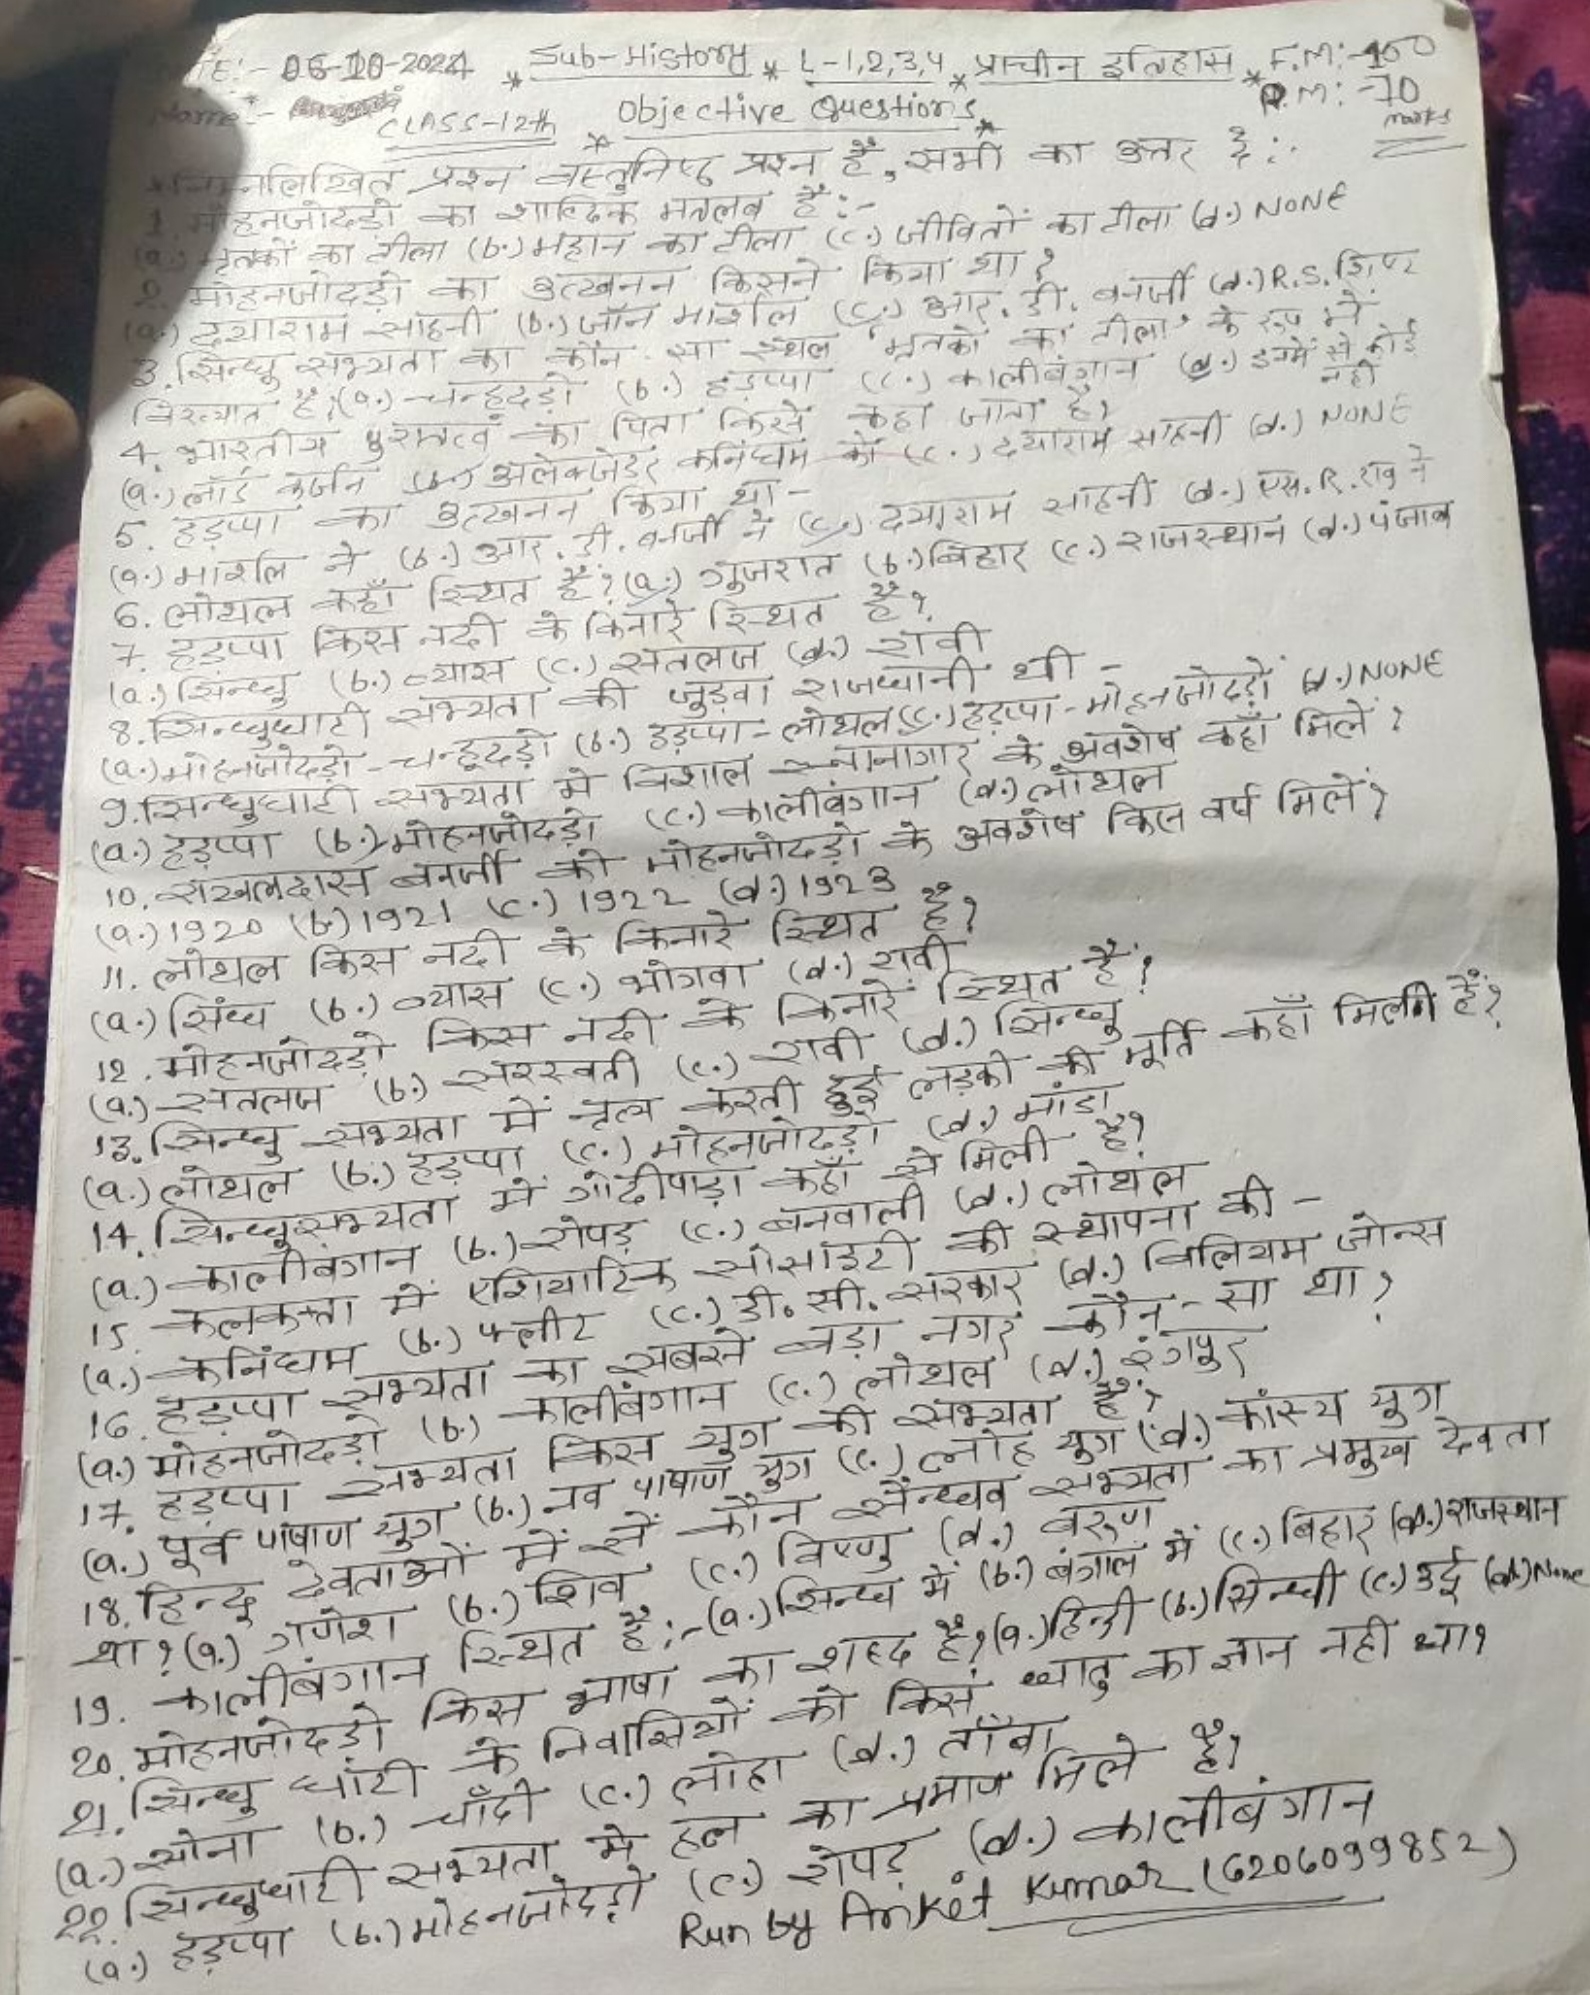 TE:- 06-10-2024 * Sub-History * L-1,2,3,4 * प्राचीन इतिहास * F.M:-100
Name:- CLASS-12th * Objective Questions * P.M:-70 marks
निम्नलिखित प्रश्न वस्तुनिष्ठ प्रश्न हैं, सभी का उत्तर दें:-
1. मोहनजोदड़ो का शाब्दिक मतलब हैं:-
(a.) मृतकों का टीला (b.) महान का टीला (c.) जीवितों का टीला (d.) NONE
2. मोहनजोदड़ो का उत्खनन किसने किया था?
(a.) दयाराम साहनी (b.) जॉन मार्शल (c.) आर. डी. बनर्जी (d.) R.S.
3. सिन्धु सभ्यता का कौन सा स्थल 'मृतकों का टीला' के रूप में
विख्यात है? (a.) चन्हुदड़ो (b.) हड़प्पा (c.) कालीबंगान (d.) इनमें से कोई नहीं
4. भारतीय पुरातत्व का पिता किसे कहा जाता है?
(a.) लॉर्ड कर्जन (b.) अलेक्जेंडर कनिंघम को (c.) दयाराम साहनी (d.) NONE
5. हड़प्पा का उत्खनन किया था -
(a.) मार्शल ने (b.) आर. डी. बनर्जी ने (c.) दयाराम साहनी (d.) एस. R. राव ने
6. लोथल कहाँ स्थित है? (a.) गुजरात (b.) बिहार (c.) राजस्थान (d.) पंजाब
7. हड़प्पा किस नदी के किनारे स्थित है?
(a.) सिन्धु (b.) व्यास (c.) सतलज (d.) रावी
8. सिन्धुघाटी सभ्यता की जुड़वा राजधानी थी -
(a.) मोहनजोदड़ो - चन्हूदड़ो (b.) हड़प्पा - लोथल (c.) हड़प्पा - मोहनजोदड़ो (d.) NONE
9. सिन्धुघाटी सभ्यता में विशाल स्नानागार के अवशेष कहाँ मिलें?
(a.) हड़प्पा (b.) मोहनजोदड़ो (c.) कालीबंगान (d.) लोथल
10. राखलदास बनर्जी को मोहनजोदड़ो के अवशेष किस वर्ष मिलें?
(a.) 1920 (b.) 1921 (c.) 1922 (d.) 1923
11. लोथल किस नदी के किनारे स्थित है?
(a.) सिंध (b.) व्यास (c.) भोगवा (d.) रावी
12. मोहनजोदड़ो किस नदी के किनारें स्थित है?
(a.) सतलज (b.) सरस्वती (c.) रावी (d.) सिन्धु
13. सिन्धु सभ्यता में नृत्य करती हुई लड़की की मूर्ति कहाँ मिली हैं?
(a.) लोथल (b.) हड़प्पा (c.) मोहनजोदड़ो (d.) मांडा
14. सिन्धुसभ्यता में गोदीपाड़ा कहाँ से मिली है?
(a.) कालीबंगान (b.) रोपड़ (c.) बनवाली (d.) लोथल
15. कलकत्ता में एशियाटिक सोसाइटी की स्थापना की -
(a.) कनिंघाम (b.) फ्लीट (c.) डी. सी. सरकार (d.) विलियम जोन्स
16. हड़प्पा सभ्यता का सबसे बड़ा नगर कौन-सा था?
(a.) मोहनजोदड़ो (b.) कालीबंगान (c.) लोथल (d.) रंगपुर
17. हड़प्पा सभ्यता किस युग की सभ्यता है?
(a.) पूर्व पाषाण युग (b.) नव पाषाण युग (c.) लौह युग (d.) कांस्य युग
18. हिन्दू देवताओं में से कौन सैन्धव सभ्यता का प्रमुख देवता
था? (a.) गणेश (b.) शिव (c.) विष्णु (d.) वरुण
19. कालीबंगान स्थित है:- (a.) सिन्ध में (b.) बंगाल में (c.) बिहार (d.) राजस्थान
20. मोहनजोदड़ो किस भाषा का शब्द है? (a.) हिन्दी (b.) सिन्धी (c.) उर्दू (d.) None
21. सिन्धु घाटी के निवासियों को किस धातु का ज्ञान नहीं था?
(a.) सोना (b.) चाँदी (c.) लोहा (d.) ताँबा
22. सिन्धुघाटी सभ्यता में हल का प्रमाण मिले है?
(a.) हड़प्पा (b.) मोहनजोदड़ो (c.) रोपड़ (d.) कालीबंगान
Run by Aniket Kumar (6206099852)